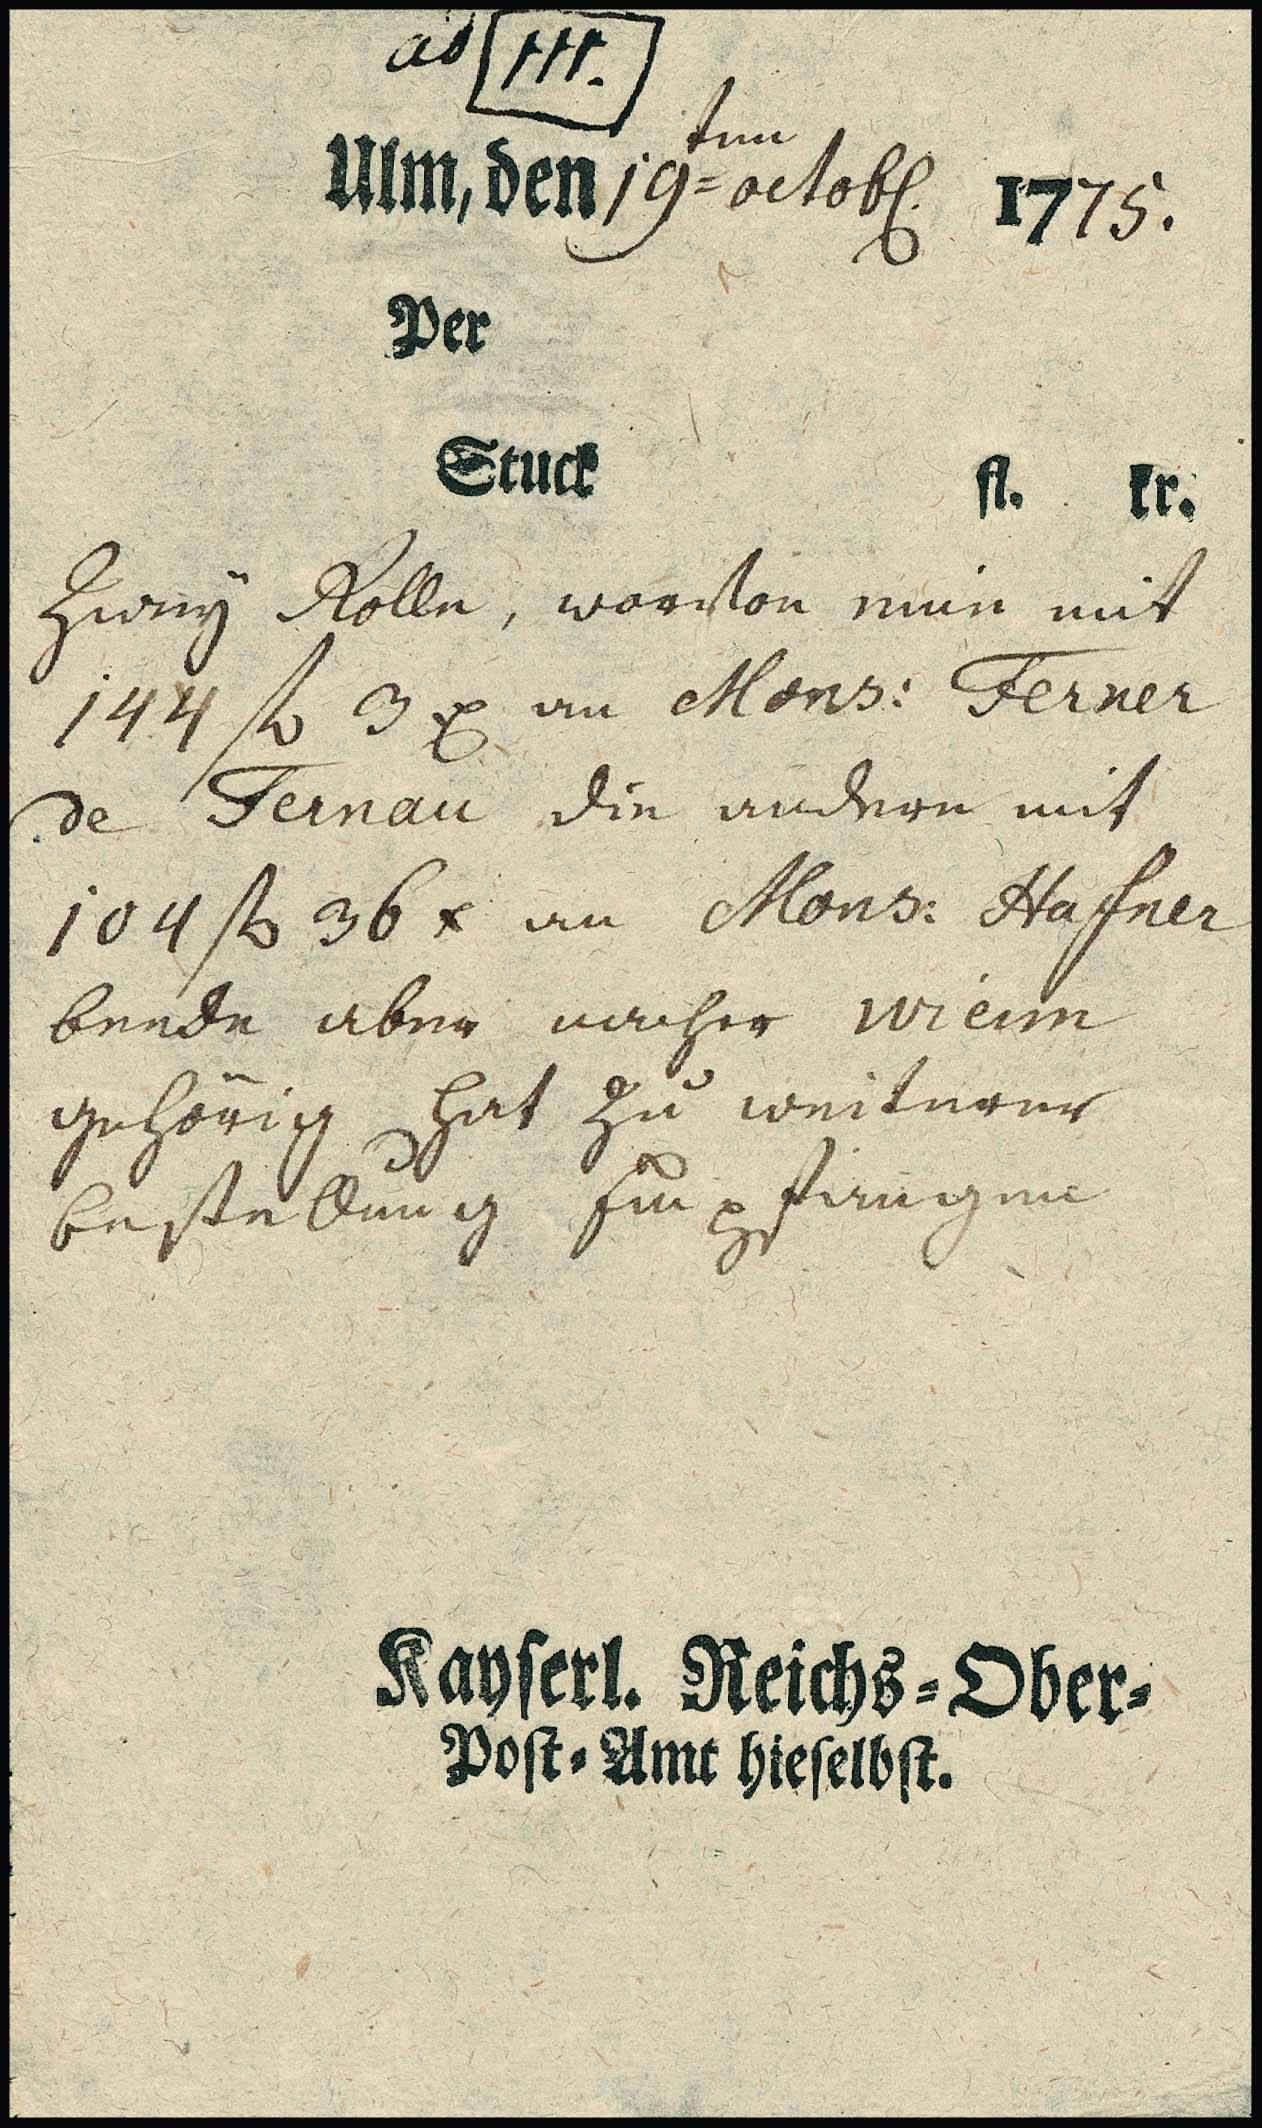 ad III.
Ulm, den 19ten octobr. 1775.
Per
Stuck fl. kr.
Zweÿ Rolle, worvon eine mit
144 fl 3 x an Mons: Ferner
de Fernau die andere mit
104 fl 36 x an Mons: Hafner
beede aber nacher Wienn
gehörig hat zu weiterer
bestellung empfangen
Kayserl. Reichs-Ober-
Post-Amt hieselbst.